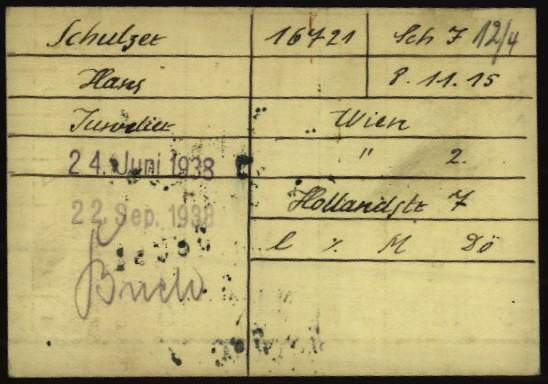 Schulzer 16721 Sch J 12/4
Hans 8.11.15
Juwelier Wien
24. Juni 1938 " 2.
22. Sep. 1938 Hollandstr 7
l % M Dö
Buchw